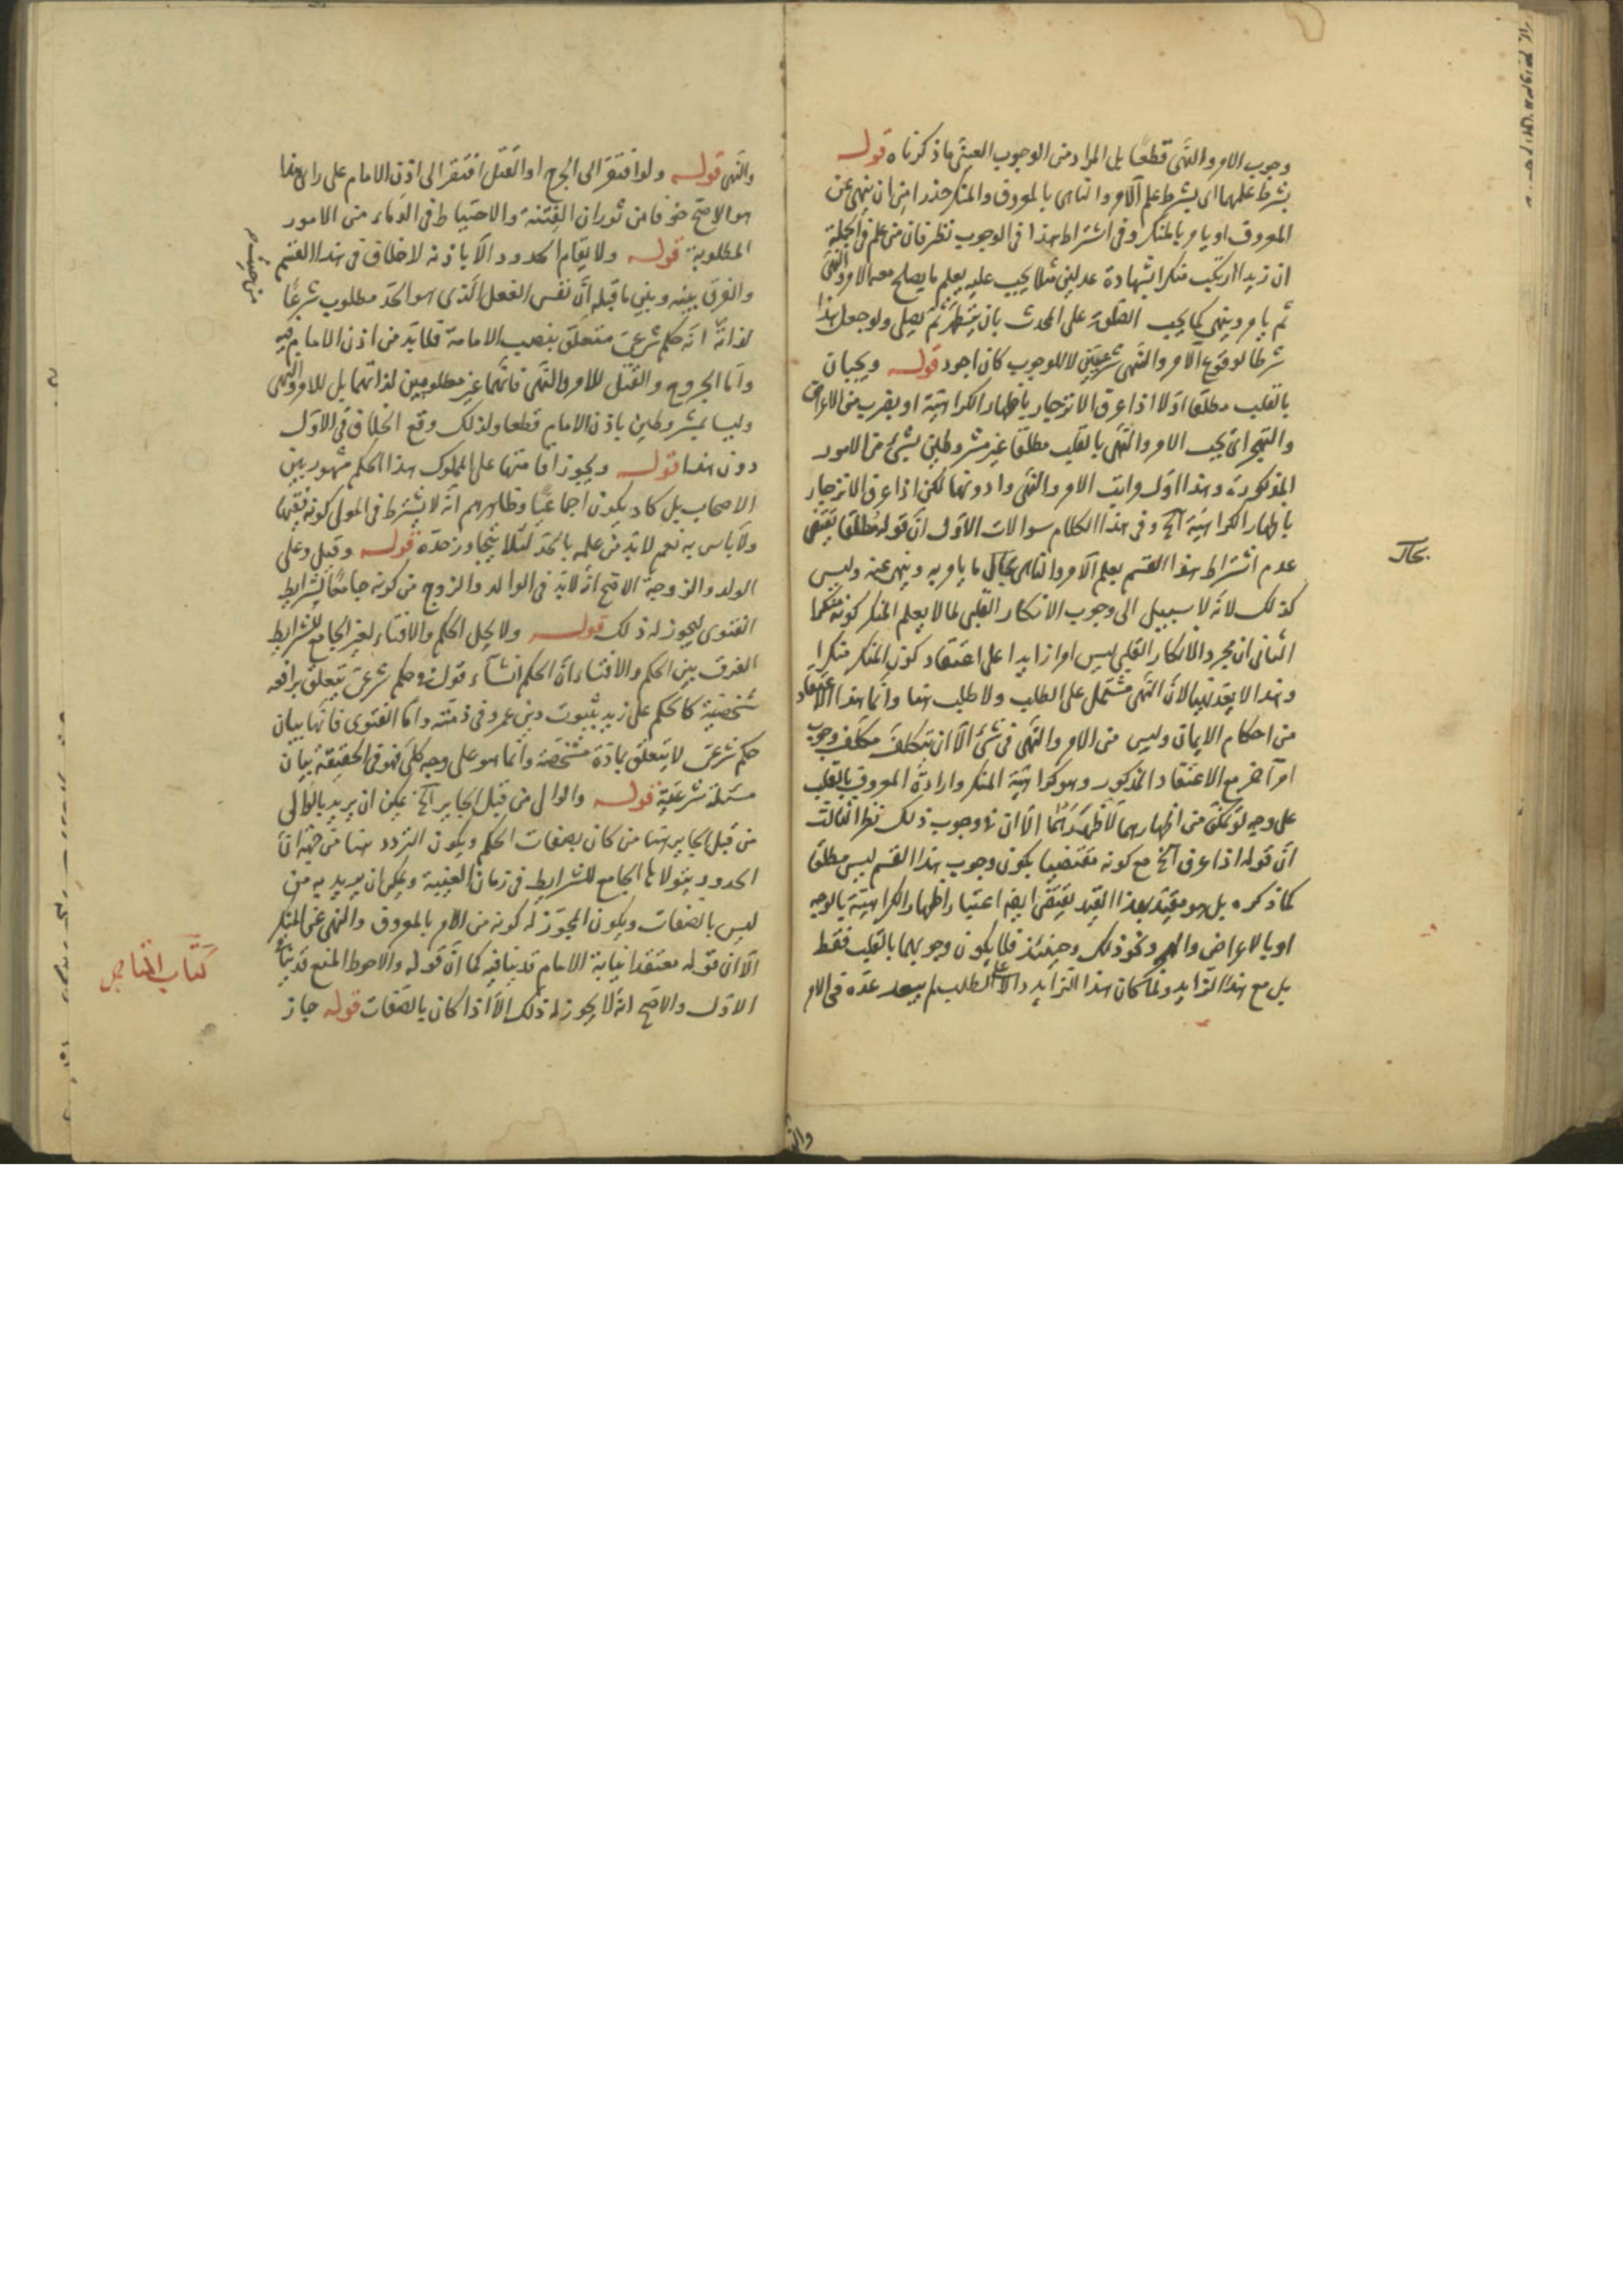 وجوب الامر والنهى قطعا بل المراد من الوجوب العينى ما ذكرناه قوله
بشرط علمهما اى يشرط علم الآمر والناهى بالمعروف والمنكر حذرا من ان ينهى عن
المعروف او يامر بالمنكر وفى اشتراط هذا فى الوجوب نظر فان من علم فى الجملة
ان زيدا ارتكب منكرا بشهادة عدلين مثلا يجب عليه تعلم ما يصلح معه الامر والنهى
ثم يامر وينهى كما يجب الصلوة على المحدث بان يتطهر ثم يصلى ولو جعل هذا
شرطا لوقوع الامر والنهى شرعيين لا للوجوب كان اجود قوله ويجبان
بالقلب مطلقا اولا اذا عرف الانزجار باظهار الكراهية او بضرب من الاعراض
والهجر اى يجب الامر والنهى بالقلب مطلقا غير مشروطين بشئ من الامور
المذكورة وهذا اول مراتب الامر والنهى وادونها لكن اذا عرف الانزجار
باظهار الكراهية آلخ وفى هذا الكلام سوالات الاول ان قوله مطلقا يقتضى
عدم اشتراط هذا القسم بعلم الآمر والناهى بحال ما يامر به وينهى عنه وليس
بحال
كذلك لانه لا سبيل الى وجوب الانكار القلبى لما لا يعلم المنكر كونه منكرا
الثانى ان مجرد الانكار القلبى ليس امرا زايدا على اعتقاد كون المنكر منكرا
وهذا لا يعد نهيا لان النهى مشتمل على الطلب ولا طلب هنا وانما هذا الاعتقاد
من احكام الايمان وليس من الامر والنهى فى شئ الا ان يتكلف متكلف وجوب
امر آخر مع الاعتقاد المذكور وهو كراهية المنكر وارادة المعروف بالقلب
على وجه لو تمكن من اظهارهما لاظهرهما الا ان فى وجوب ذلك نظر الثالث
ان قوله اذا عرف آلخ مع كونه مقتضيا لكون وجوب هذا القسم ليس مطلقا
كما ذكره بل هو مقيد بهذا القيد يقتضى ايضا اعتبار اظهار الكراهية بالوجه
او بالاعراض والهجر ونحو ذلك وحينئذ فلا يكون وجوبهما بالقلب فقط
بل مع هذا الزايد ولما كان هذا الزايد دالا على الطلب لم يبعد عده فى الامر
والنهى قوله ولو افتقر الى الجرح او القتل افتقر الى اذن الامام على راى هذا
هو الاصح خوفا من ثوران الفتنة والاحتياط فى الدماء من الامور
المطلوبة قوله ولا يقام الحدود الا باذنه لا خلاف فى هذا القسم
والفرق بينه وبين ما قبله ان نفس الفعل الذى هو الحد مطلوب شرعا
من حيث
لذاته انه حكم شرعى متعلق بنصب الامامة فلا بد من اذن الامام فيه
واما الجروح والقتل للامر والنهى فانهما غير مطلوبين لذاتهما بل للامر والنهى
وليسا بمشروطين باذن الامام قطعا ولذلك وقع الخلاف فى الاول
دون هذا قوله ويجوز اقامتها على المملوك هذا الحكم مشهور بين
الاصحاب بل كاد يكون اجماعيا وظاهرهم انه لا يشترط فى المولى كونه فقيها
ولا باس به نعم لا بد من علمه بالحد لئلا يتجاوز حده قوله وقيل وعلى
الولد والزوجة الاصح انه لا بد فى الوالد والزوج من كونه جامعا لشرايط
الفتوى ليجوز له ذلك قوله ولا يحل الحكم والافتاء لغير الجامع للشرايط
الفرق بين الحكم والافتاء ان الحكم انشاء قول فى حكم شرعى يتعلق بواقعة
شخصية كالحكم على زيد بثبوت دين عمرو فى ذمته واما الفتوى فانها بيان
حكم شرعى لا يتعلق بمادة مشخصة وانما هو على وجه كلى فهو فى الحقيقة بيان
مسئلة شرعية قوله والوالى من قبل الجاير آلخ يمكن ان يريد بالوالى
من قبل الجاير هنا من كان بصفات الحكم ويكون التردد هنا من جهة ان
الحدود يتولاها الجامع للشرايط فى زمان الغيبة ويمكن ان يريد به من
ليس بالصفات ويكون المجوز له كونه من الامر بالمعروف والنهى عن المنكر
الا ان قوله معتقدا نيابة الامام قد ينافيه كما ان قوله والاحوط المنع قد ينافى
الاول والاصح انه لا يجوز له ذلك الا اذا كان بالصفات قوله جاز
والنهى